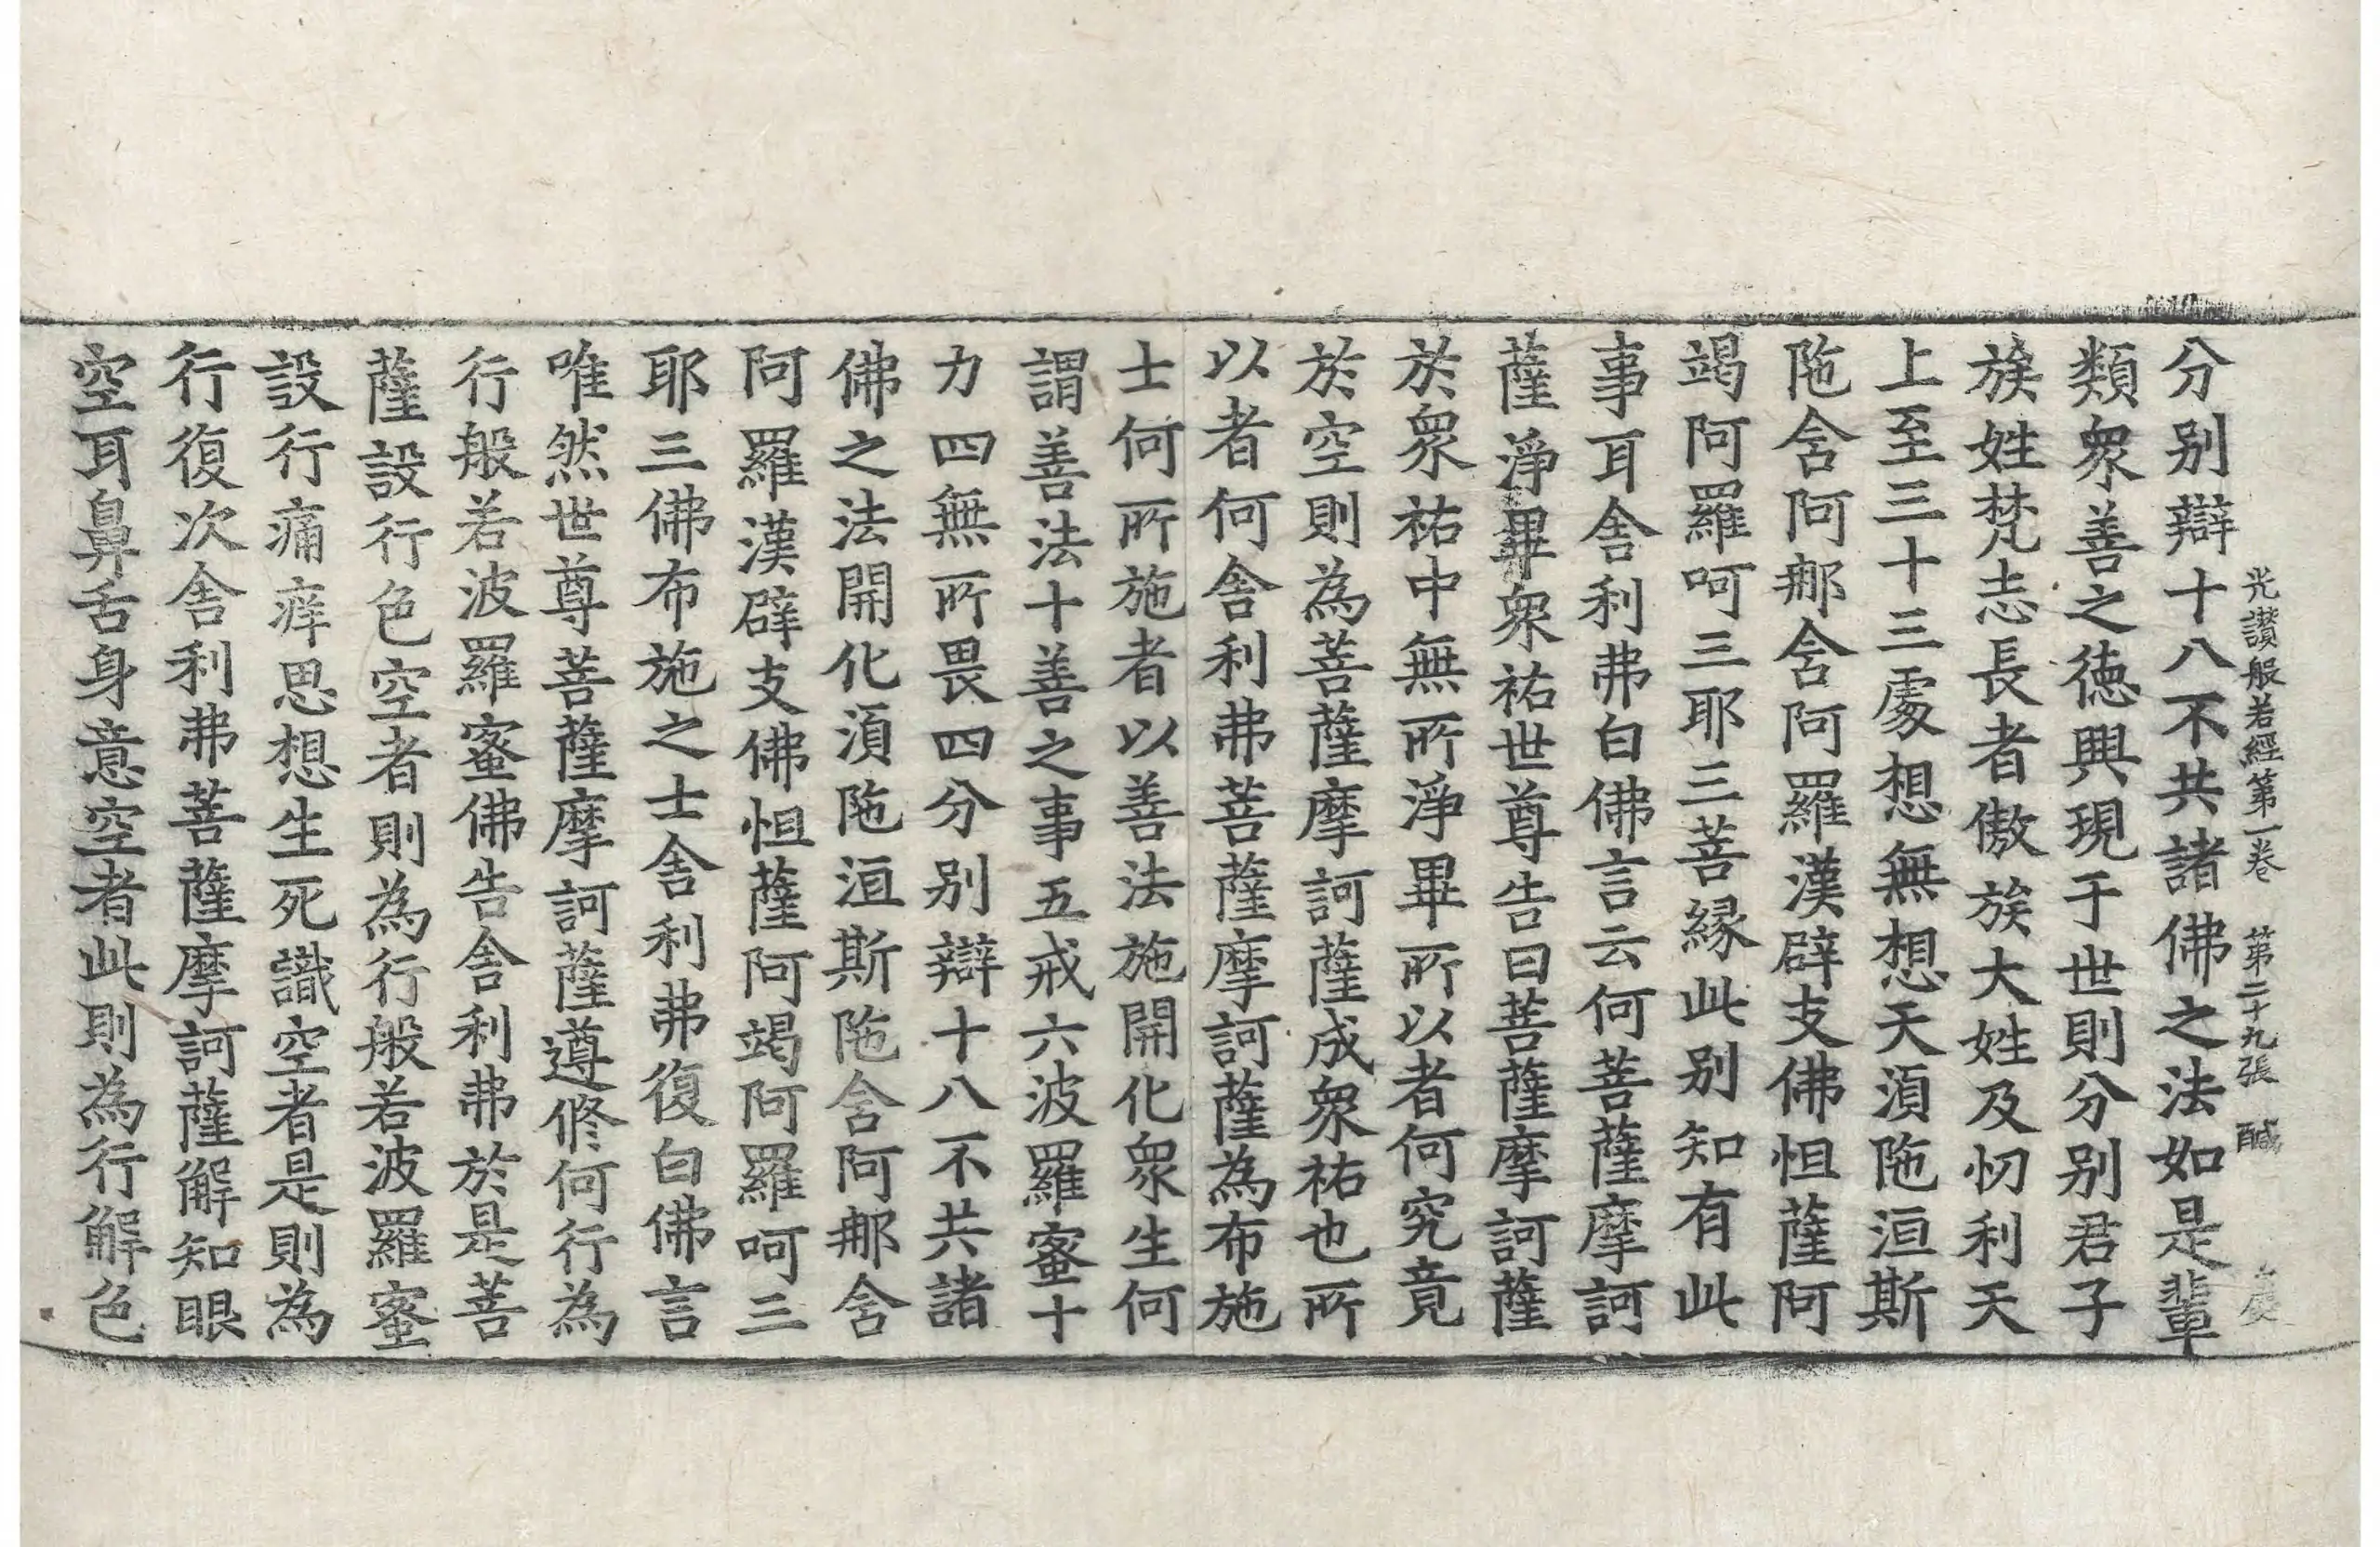 光讚般若經第一卷 第二十九張 醎
分别辯十八不共諸佛之法如是輩
類衆善之徳興現于世則分别君子
族姓梵志長者傲族大姓及忉利天
上至三十三處想無想天湏陁洹斯
陁含阿那含阿羅漢辟支佛怛薩阿
竭阿羅呵三耶三菩縁此别知有此
事耳舎利弗白佛言云何菩薩摩訶
薩淨畢衆祐世尊告曰菩薩摩訶薩
於衆祐中無所淨畢所以者何究竟
於空則為菩薩摩訶薩成衆祐也所
以者何舎利弗菩薩摩訶薩為布施
士何所施者以善法施開化衆生何
謂善法十善之事五戒六波羅蜜十
力四無所畏四分别辯十八不共諸
佛之法開化湏陁洹斯陁含阿那含
阿羅漢辟支佛怛薩阿竭阿羅呵三
耶三佛布施之士舎利弗復白佛言
唯然世尊菩薩摩訶薩遵修何行為
行般若波羅蜜佛告舎利弗於是菩
薩設行色空者則為行般若波羅蜜
設行痛痒思想生死識空者是則為
行復次舎利弗菩薩摩訶薩解知眼
空耳鼻舌身意空者此則為行解色